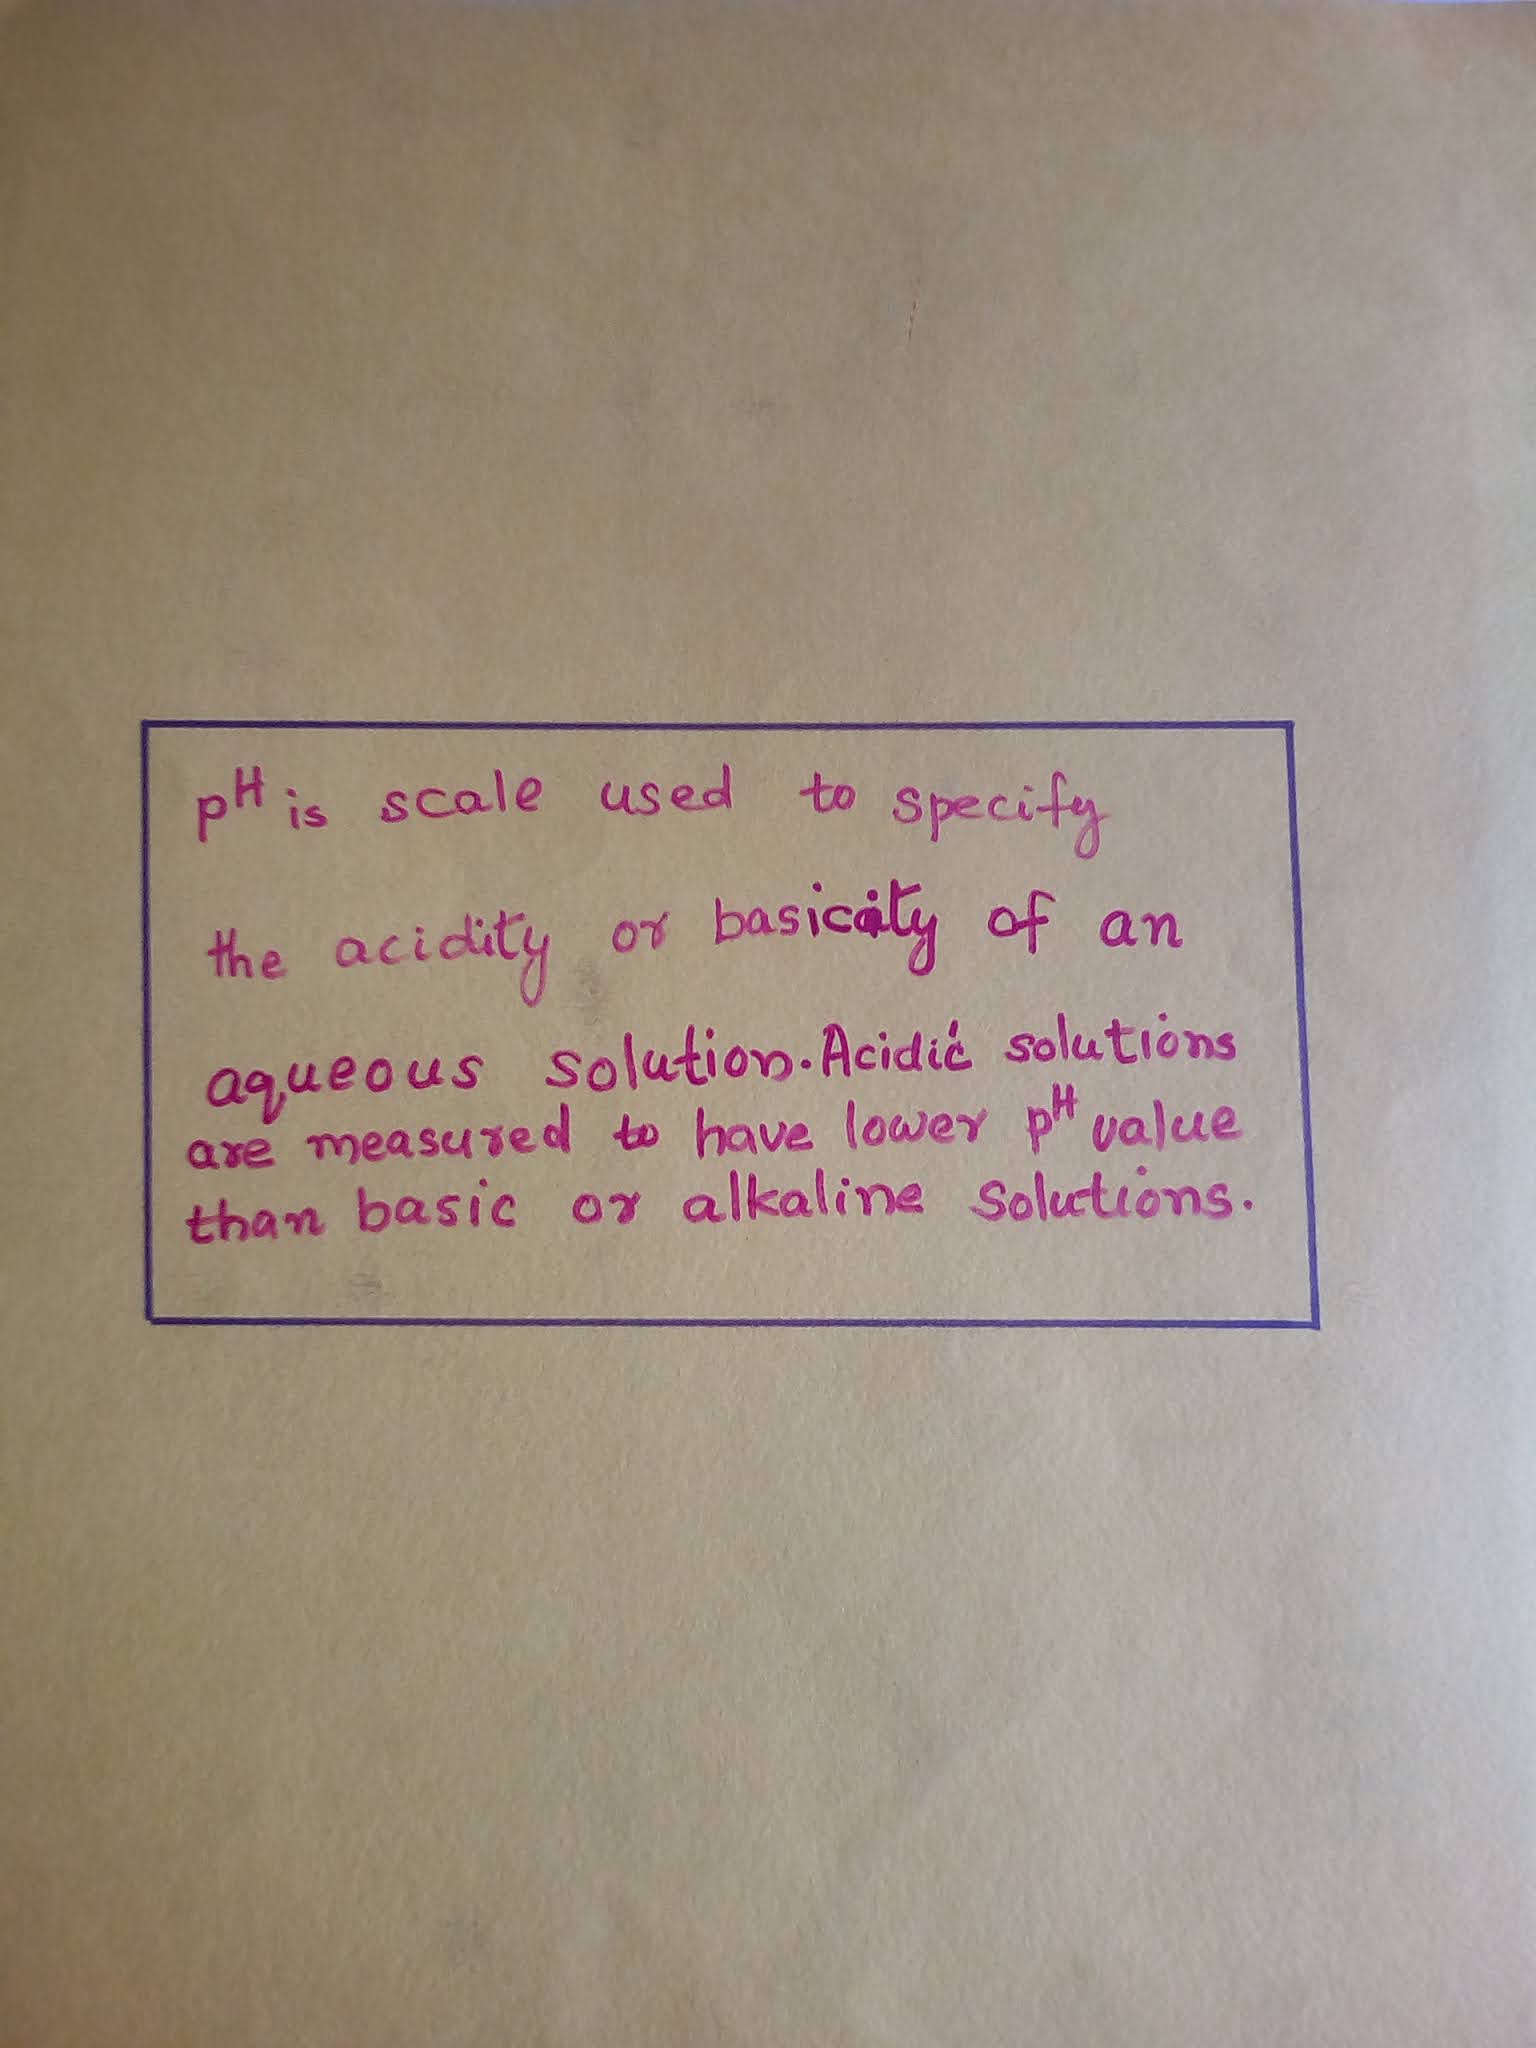 pH is scale used to specify
the acidity or basicity of an
aqueous solution. Acidic solutions
are measured to have lower pH value
than basic or alkaline solutions.